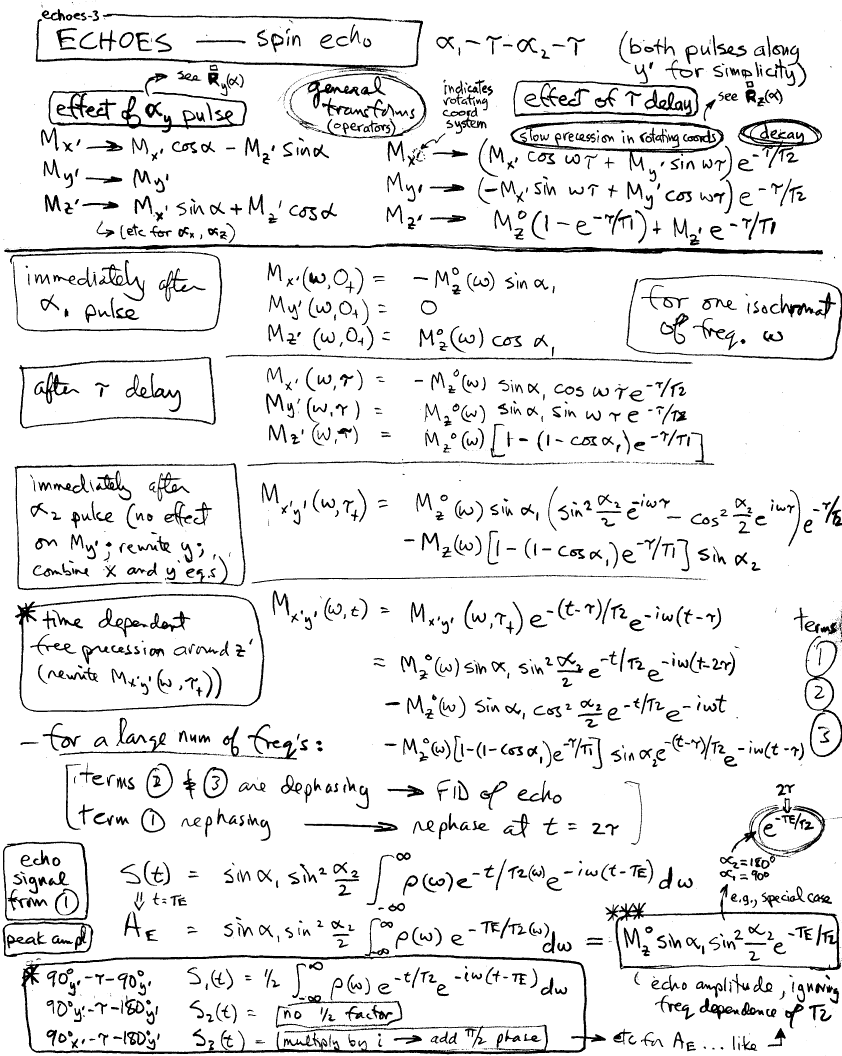 echoes-3-
ECHOES — spin echo
α₁-τ-α₂-τ (both pulses along y' for simplicity)
→ see R̿y(α)
effect of αy pulse
general transforms (operators)
indicates rotating coord system
effect of τ delay
→ see R̿z(α)
slow precession in rotating coords
decay
Mx' → Mx' cosα - Mz' sinα
My' → My'
Mz' → Mx' sinα + Mz' cosα
↳ (etc for αx, αz)
Mx' → (Mx' cos ωτ + My' sin ωτ) e^-τ/T2
My' → (-Mx' sin ωτ + My' cos ωτ) e^-τ/T2
Mz' → Mz°(1 - e^-τ/T1) + Mz' e^-τ/T1
immediately after α₁ pulse
Mx'(ω,0+) = -Mz°(ω) sin α₁
My'(ω,0+) = 0
Mz'(ω,0+) = Mz°(ω) cos α₁
for one isochromat of freq. ω
after τ delay
Mx'(ω,τ) = -Mz°(ω) sinα₁ cos ωτ e^-τ/T2
My'(ω,τ) = Mz°(ω) sinα₁ sin ωτ e^-τ/T2
Mz'(ω,τ) = Mz°(ω) [1-(1-cosα₁)e^-τ/T1]
immediately after
α₂ pulse (no effect
on My'; rewrite y;
combine x and y eq.s)
Mx'y'(ω,τ+) = Mz°(ω) sinα₁ (sin² α₂/2 e^-iωτ - cos² α₂/2 e^iωτ) e^-τ/T2
- Mz(ω) [1-(1-cosα₁)e^-τ/T1] sin α₂
* time dependent
free precession around z'
(rewrite Mx'y'(ω,τ+))
Mx'y'(ω,t) = Mx'y'(ω,τ+) e^-(t-τ)/T2 e^-iω(t-τ)
terms
= Mz°(ω) sinα₁ sin² α₂/2 e^-t/T2 e^-iω(t-2τ) ①
- Mz°(ω) sinα₁ cos² α₂/2 e^-t/T2 e^-iωt ②
- Mz°(ω)[1-(1-cosα₁)e^-τ/T1] sinα₂ e^-(t-τ)/T2 e^-iω(t-τ) ③
- for a large num of freq's:
terms ② & ③ are dephasing → FID of echo
term ① rephasing → rephase at t = 2τ
2τ
⇓
e^-TE/T2
α₂=180°
α₁=90°
e.g., special case
echo signal from ①
S(t) = sinα₁ sin² α₂/2 ∫_-∞^∞ ρ(ω) e^-t/T2(ω) e^-iω(t-TE) dω
⇓ t=TE
peak ampl
AE = sinα₁ sin² α₂/2 ∫_-∞^∞ ρ(ω) e^-TE/T2(ω) dω = Mz° sinα₁ sin² α₂/2 e^-TE/T2
***
(echo amplitude, ignoring
freq dependence of T2
* 90°y'-τ-90°y' S₁(t) = 1/2 ∫_-∞^∞ ρ(ω) e^-t/T2 e^-iω(t-TE) dω
90°y'-τ-180°y' S₂(t) = no 1/2 factor
90°x'-τ-180°y' S₃(t) = (multiply by i → add π/2 phase) → etc for AE ... like